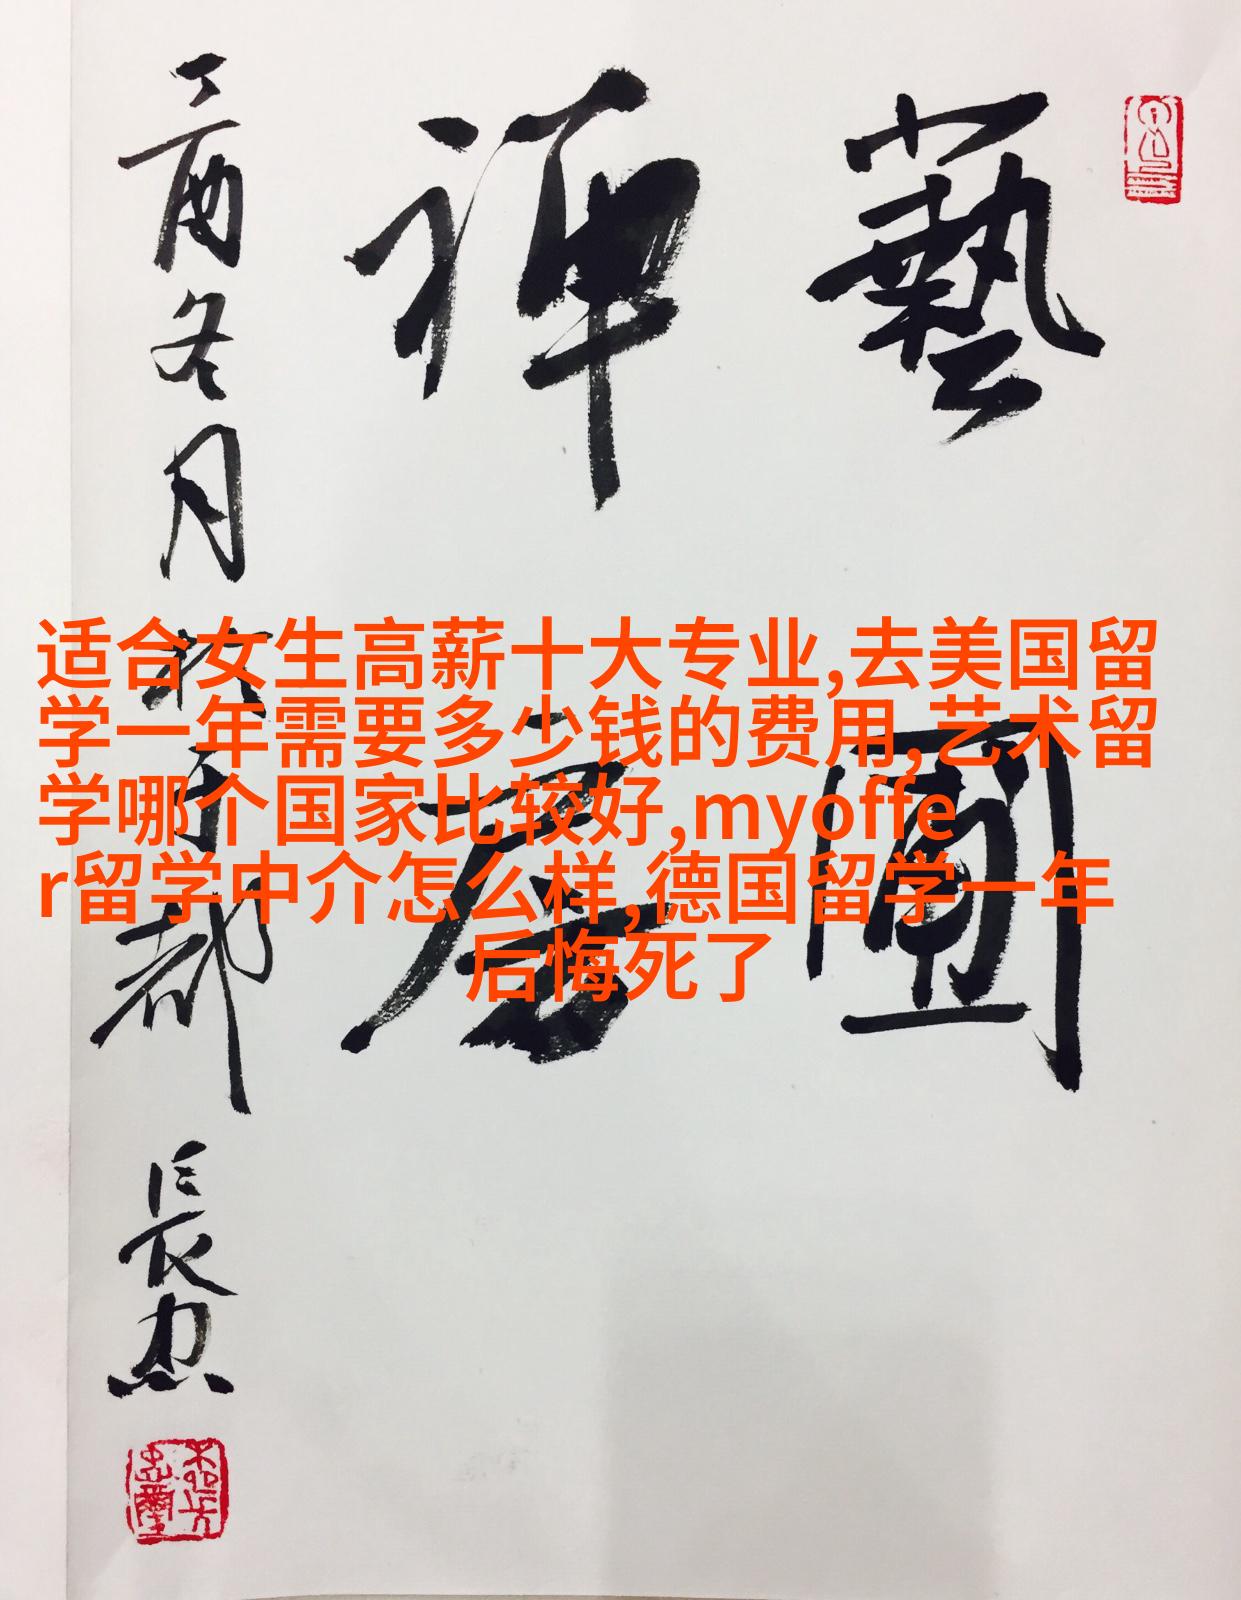 藝圃
禅
丁酉冬月於
都
長
适合女生高薪十大专业,去美国留
学一年需要多少钱的费用,艺术留
学哪个国家比较好,myoffe
r留学中介怎么样,德国留学一年
后悔死了